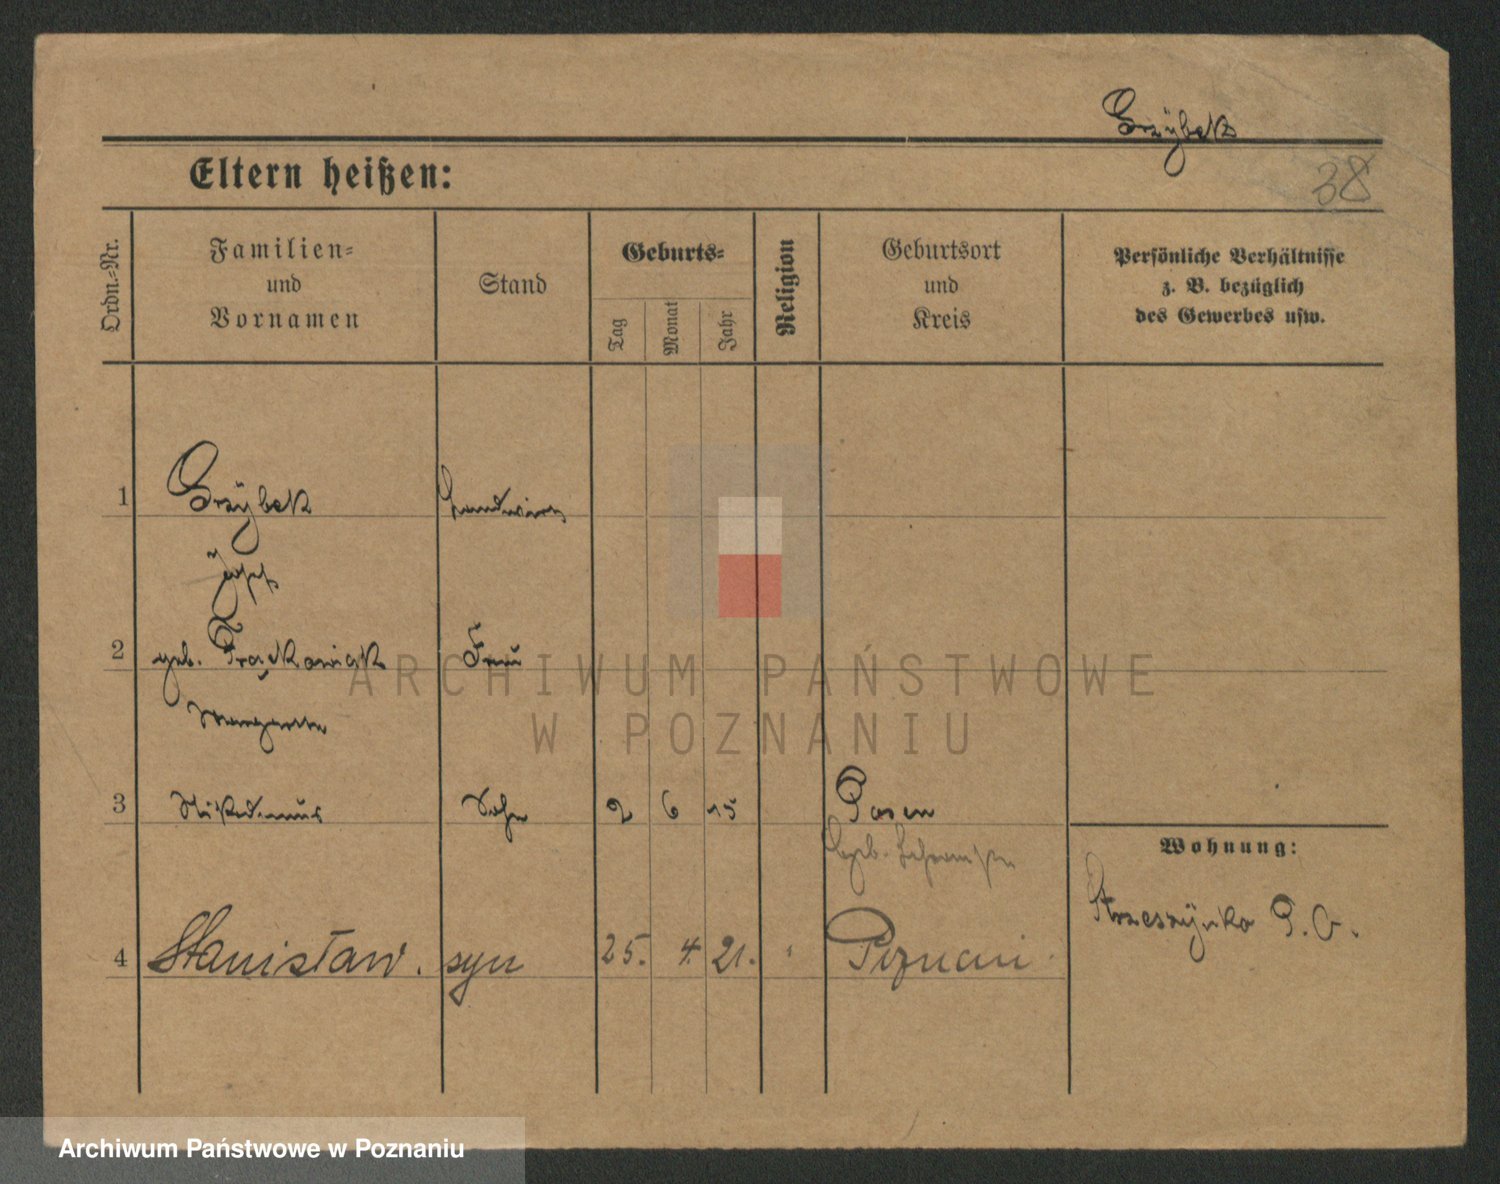 Grzÿbek
Eltern heißen:
38
Ordn.=Nr.
Familien=
und
Vornamen
Stand
Geburts=
Tag
Monat
Jahr
Religion
Geburtsort
und
Kreis
Persönliche Verhältnisse
z. B. bezüglich
des Gewerbes usw.
1 Grzÿbek Landwirt
Josef
2 geb. Frąckowiak Frau
Margareta
3 Nikodemus Sohn 2 6 15 Posen
Wohnung:
Strzeszÿnko P. O.
4 Stanisław. syn 25. 4. 21. " Poznań
ARCHIWUM PAŃSTWOWE
W POZNANIU
Archiwum Państwowe w Poznaniu